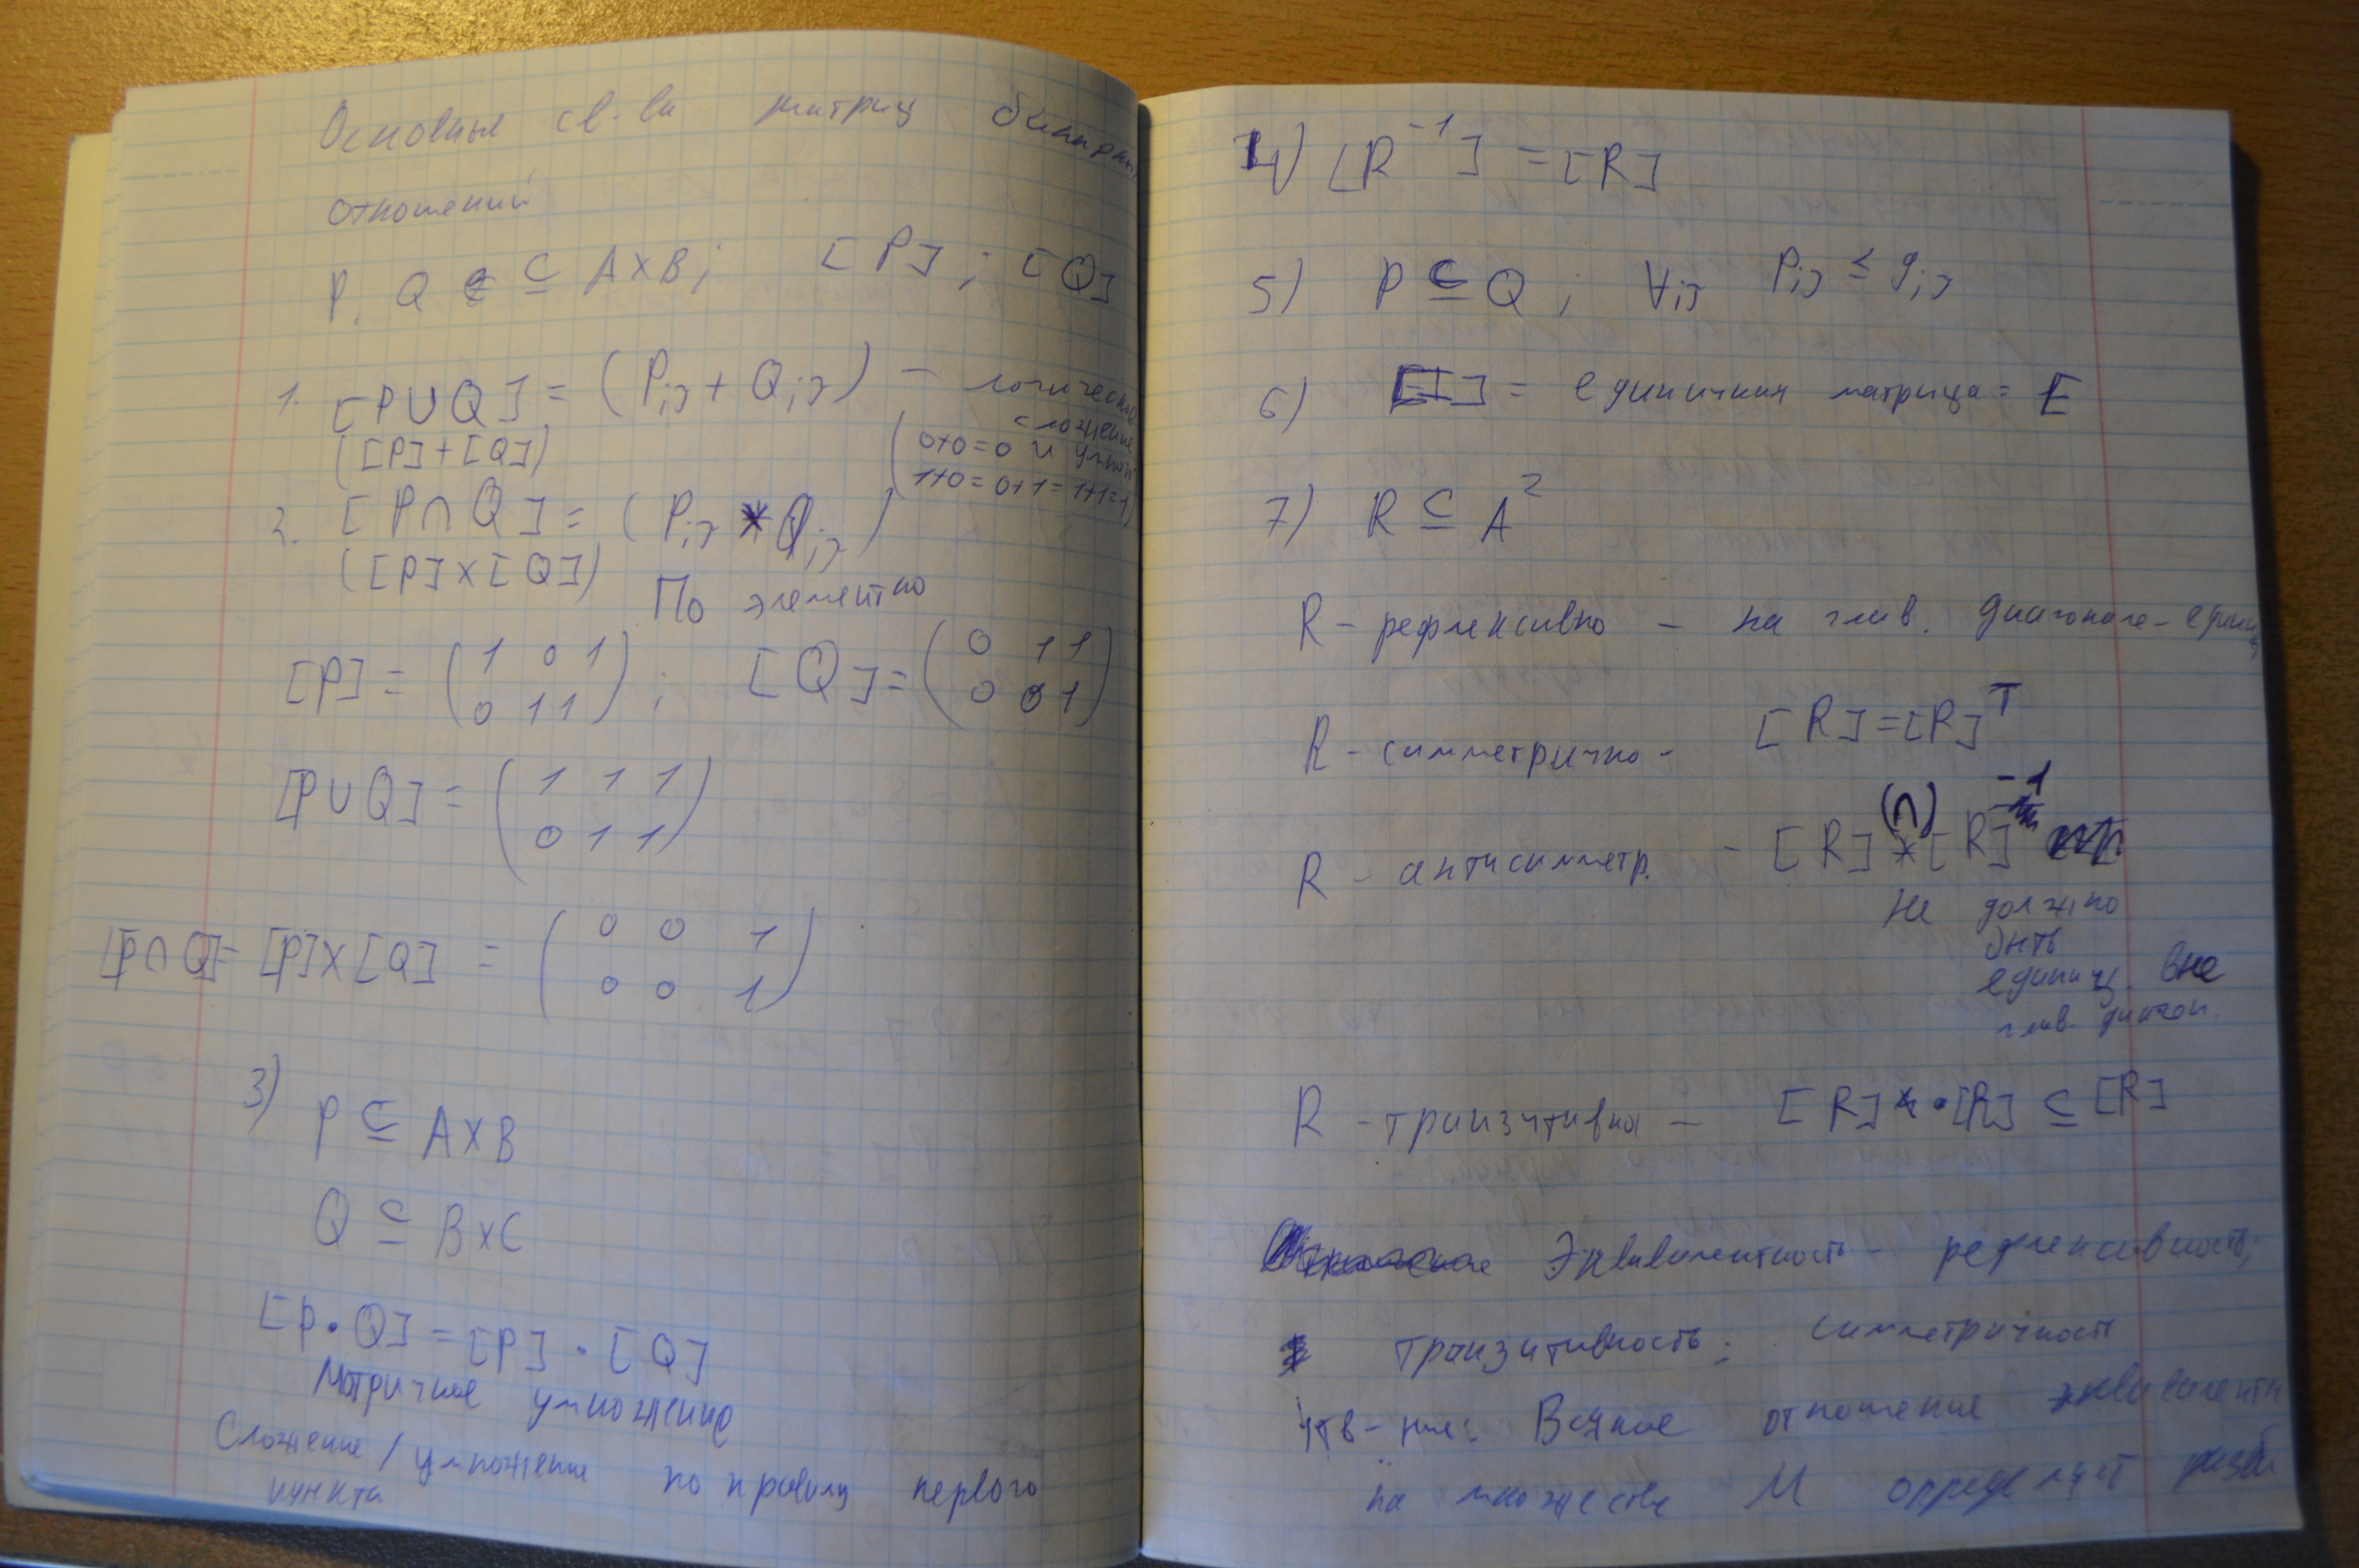 Основные св-ва матриц бинарных
отношений
P, Q ⊆ A×B; [P]; [Q]
1. [P∪Q] = (Pij + Qij) – логическое
сложение
([P]+[Q])
(0+0=0 и умнож
1+0=0+1=1+1=1)
2. [P∩Q] = (Pij * Qij)
([P]×[Q])
По элементно
[P] = (1 0 1; [Q] = (0 1 1
0 1 1) 0 0 1)
[P∪Q] = (1 1 1
0 1 1)
[P∩Q]= [P]×[Q] = (0 0 1
0 0 1)
3) P ⊆ A×B
Q ⊆ B×C
[P•Q] = [P] • [Q]
Матричное умножение
Сложение / умножение по правилу первого
пункта
4) [R⁻¹] = [R]
5) P ⊆ Q ; ∀ij Pij ≤ qij
6) [I] = единичная матрица = E
7) R ⊆ A²
R – рефлексивно – на глав. диагонале – единиц
R – симметрично – [R]=[R]ᵀ
R – антисимметр. – [R] (∩) * [R]⁻¹
не должно
быть
единиц вне
глав. диагон.
R – транзитивна – [R] • [R] ⊆ [R]
Эквивалентность – рефлексивность;
транзитивность; симметричность
утв-ние: Всякое отношение эквивалентн
на множестве M определяет разби